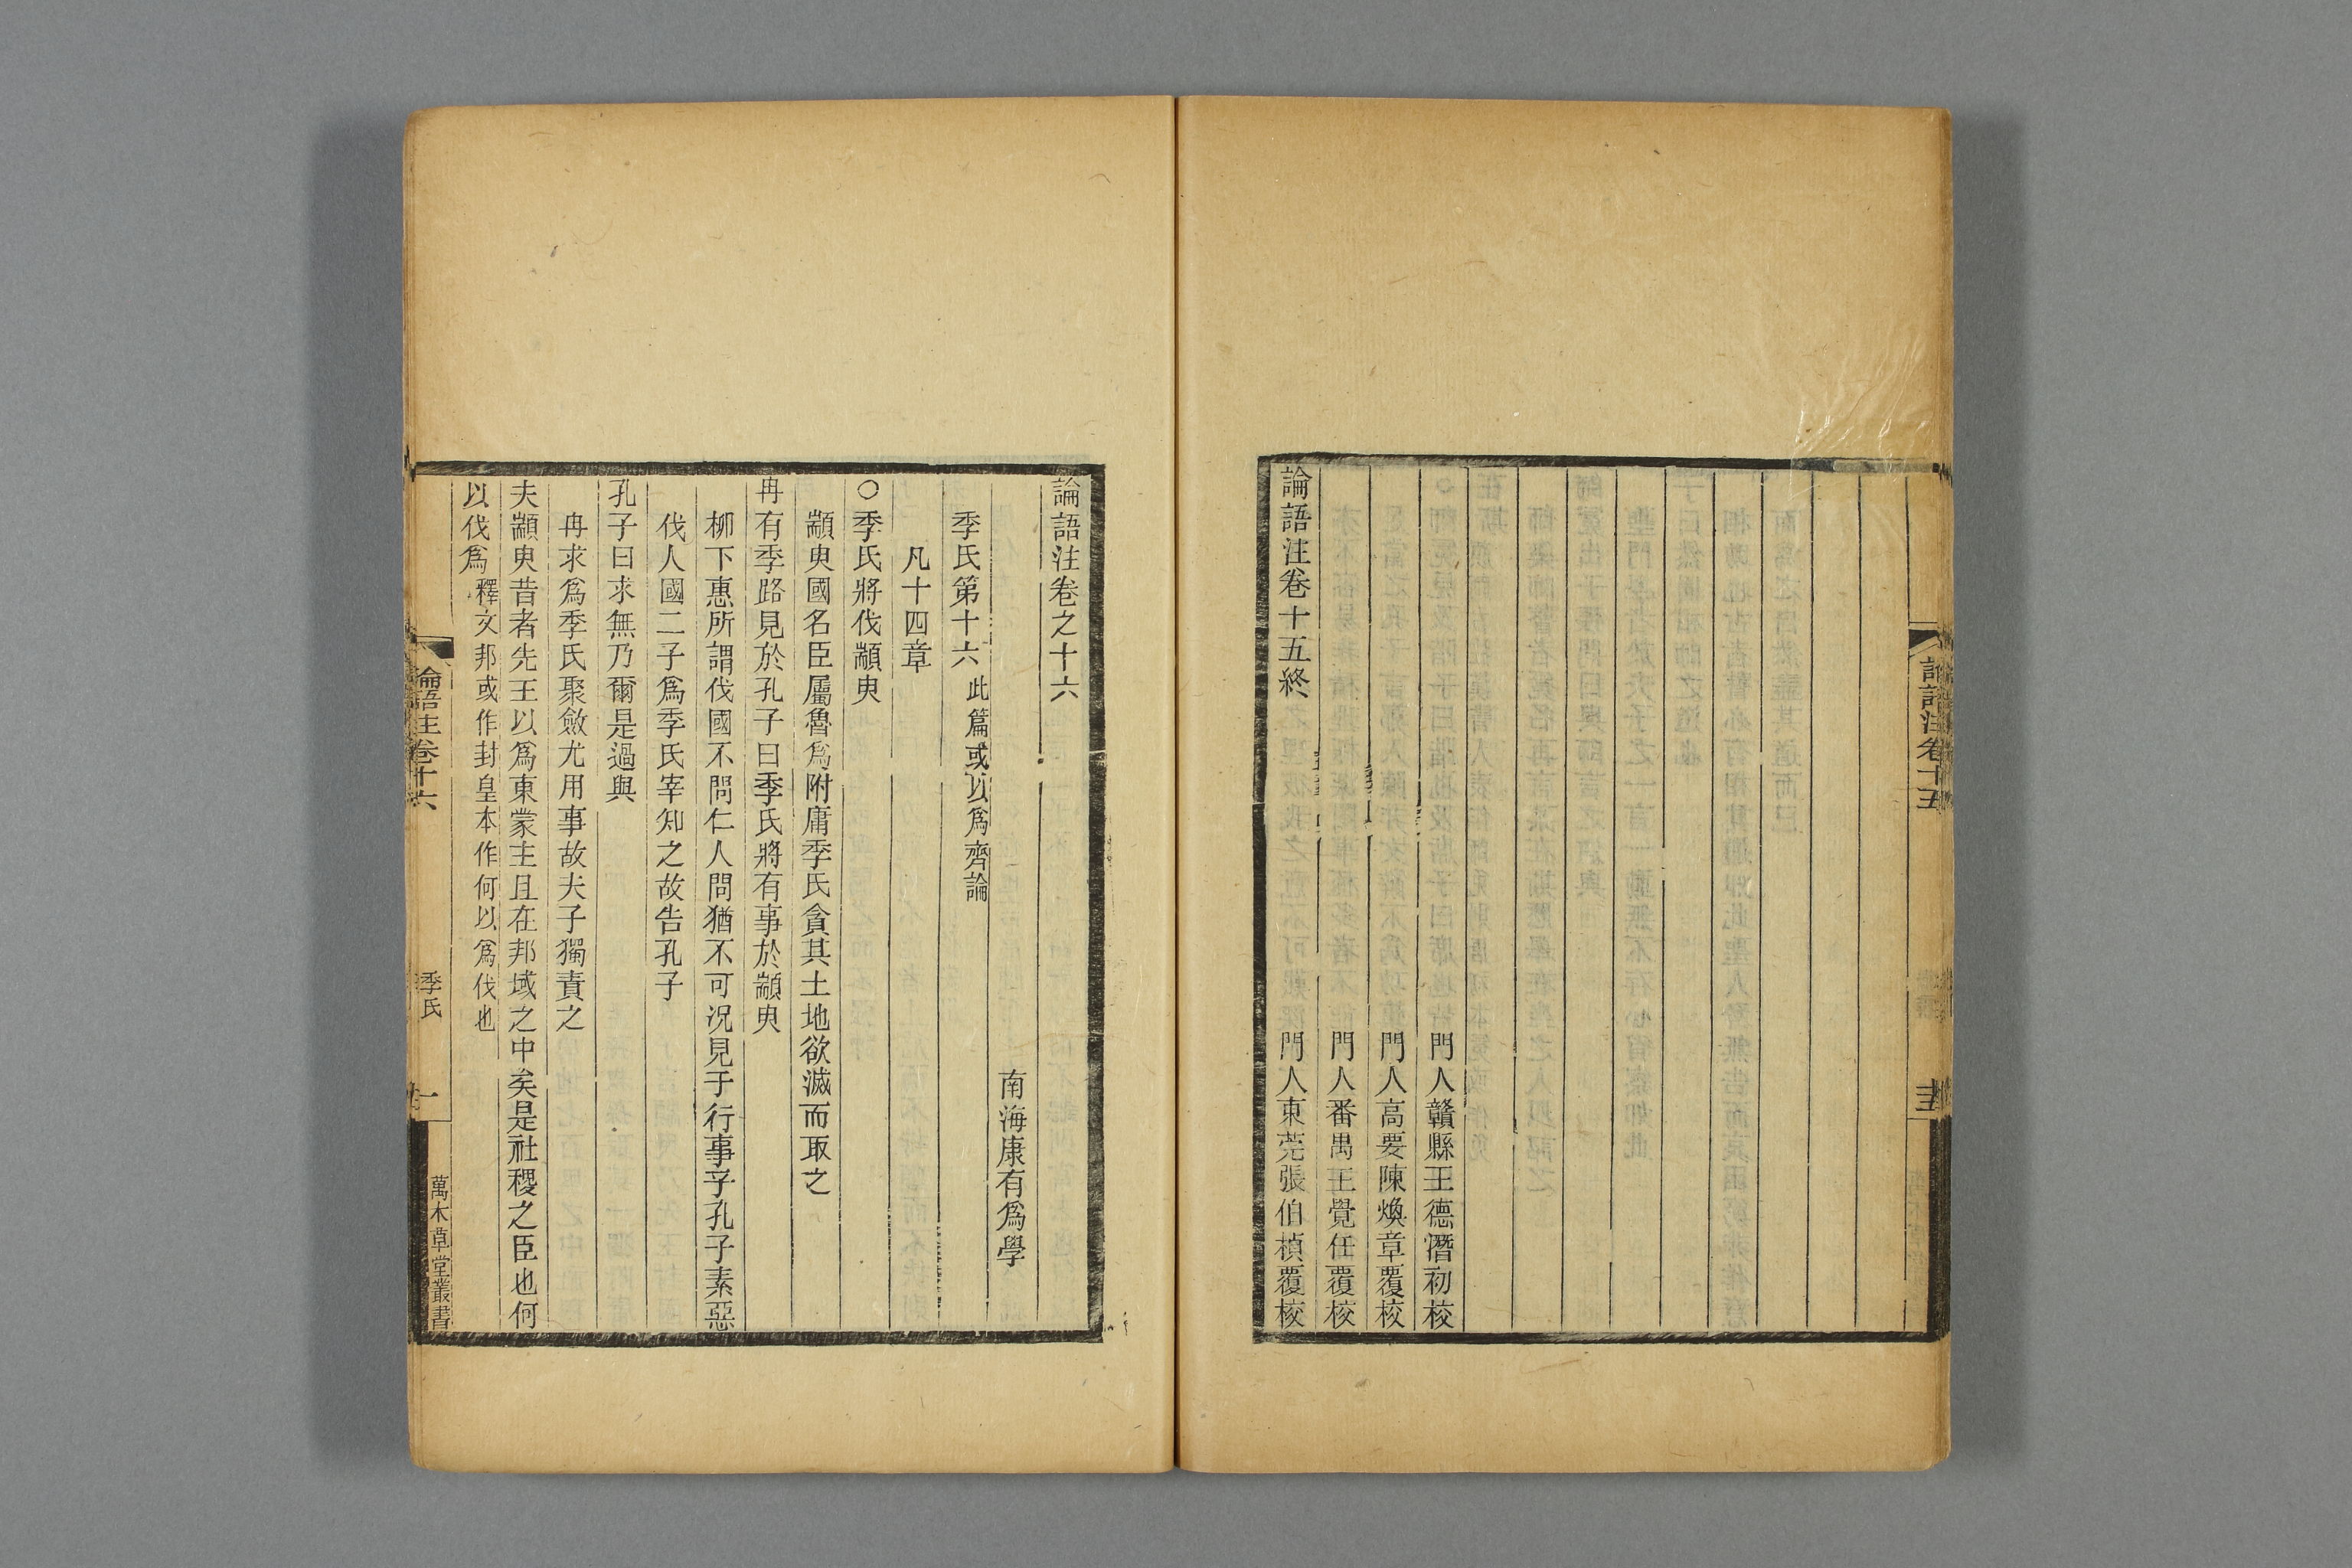 論語注卷十五
門人贛縣王德潛初校
門人高要陳煥章覆校
門人番禺王覺任覆校
論語注卷十五終
門人東莞張伯楨覆校
論語注卷之十六
南海康有爲學
季氏第十六此篇或以爲齊論
凡十四章
○季氏將伐顓臾
顓臾國名臣屬魯爲附庸季氏貪其土地欲滅而取之
冉有季路見於孔子曰季氏將有事於顓臾
柳下惠所謂伐國不問仁人問猶不可况見于行事乎孔子素惡
伐人國二子爲季氏宰知之故告孔子
孔子曰求無乃爾是過與
冉求爲季氏聚斂尤用事故夫子獨責之
夫顓臾昔者先王以爲東蒙主且在邦域之中矣是社稷之臣也何
以伐爲釋文邦或作封皇本作何以爲伐也
論語注卷十六
季氏
一
萬木草堂叢書